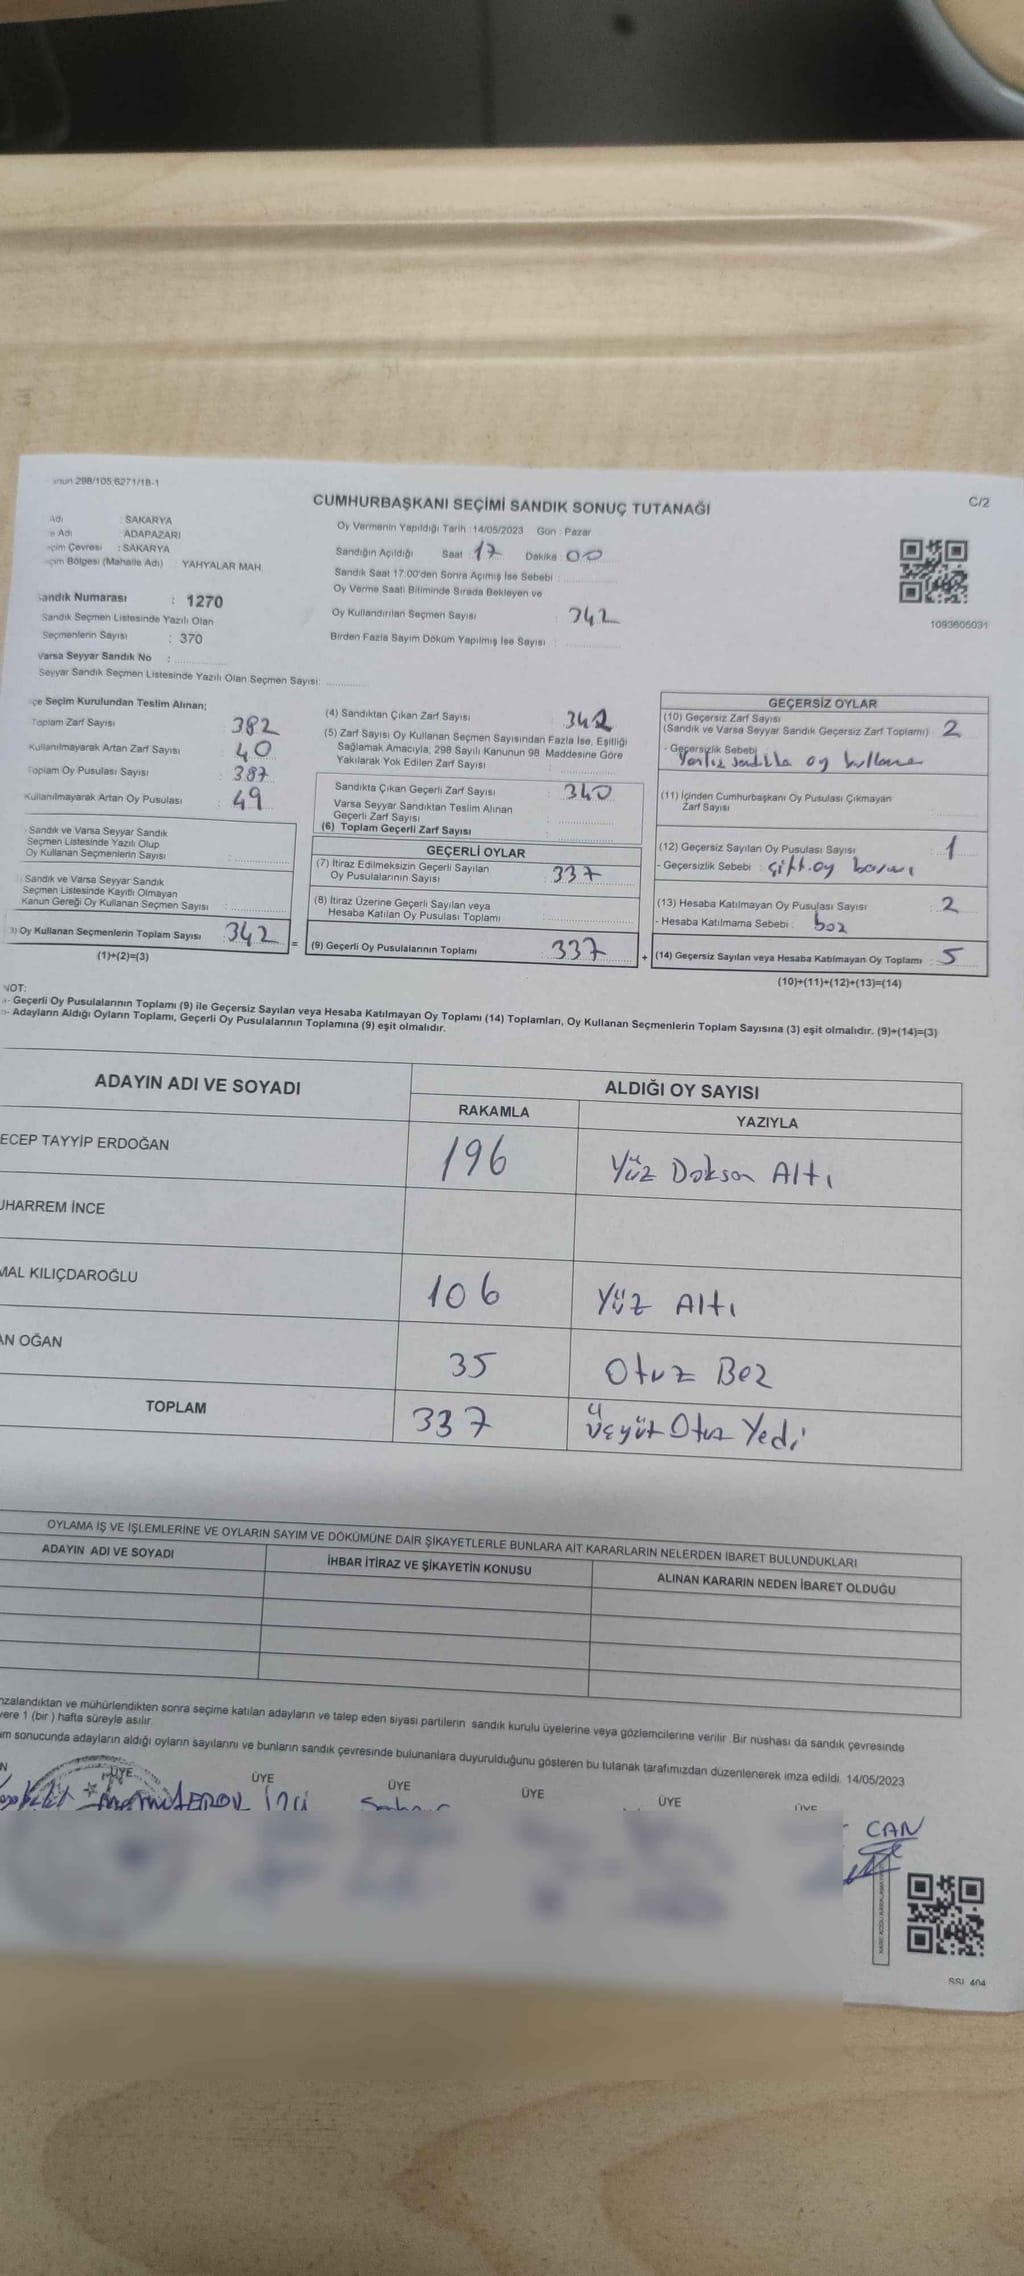 298/105,6271/18-1
C/2
CUMHURBAŞKANI SEÇİMİ SANDIK SONUÇ TUTANAĞI
Adı : SAKARYA
Adı : ADAPAZARI
çim Çevresi : SAKARYA
çim Bölgesi (Mahalle Adı) : YAHYALAR MAH.
Sandık Numarası : 1270
Sandık Seçmen Listesinde Yazılı Olan
Seçmenlerin Sayısı : 370
Varsa Seyyar Sandık No :
Seyyar Sandık Seçmen Listesinde Yazılı Olan Seçmen Sayısı:
Oy Vermenin Yapıldığı Tarih : 14/05/2023 Gün : Pazar
Sandığın Açıldığı Saat : 17 Dakika : 00
Sandık Saat 17:00'den Sonra Açımış İse Sebebi :
Oy Verme Saati Bitiminde Sırada Bekleyen ve
Oy Kullandırılan Seçmen Sayısı : 342
Birden Fazla Sayım Döküm Yapılmış İse Sayısı :
1093605031
çe Seçim Kurulundan Teslim Alınan;
Toplam Zarf Sayısı : 382
Kullanılmayarak Artan Zarf Sayısı : 40
Toplam Oy Pusulası Sayısı : 387
Kullanılmayarak Artan Oy Pusulası : 49
Sandık ve Varsa Seyyar Sandık
Seçmen Listesinde Yazılı Olup
Oy Kullanan Seçmenlerin Sayısı :
Sandık ve Varsa Seyyar Sandık
Seçmen Listesinde Kayıtlı Olmayan
Kanun Gereği Oy Kullanan Seçmen Sayısı :
3) Oy Kullanan Seçmenlerin Toplam Sayısı : 342 =
(1)+(2)=(3)
(4) Sandıktan Çıkan Zarf Sayısı : 342
(5) Zarf Sayısı Oy Kullanan Seçmen Sayısından Fazla İse, Eşitliği
Sağlamak Amacıyla, 298 Sayılı Kanunun 98. Maddesine Göre
Yakılarak Yok Edilen Zarf Sayısı :
Sandıkta Çıkan Geçerli Zarf Sayısı : 340
Varsa Seyyar Sandıktan Teslim Alınan
Geçerli Zarf Sayısı :
(6) Toplam Geçerli Zarf Sayısı :
GEÇERLİ OYLAR
(7) İtiraz Edilmeksizin Geçerli Sayılan
Oy Pusulalarının Sayısı : 337
(8) İtiraz Üzerine Geçerli Sayılan veya
Hesaba Katılan Oy Pusulası Toplamı :
(9) Geçerli Oy Pusulalarının Toplamı : 337 +
GEÇERSİZ OYLAR
(10) Geçersiz Zarf Sayısı
(Sandık ve Varsa Seyyar Sandık Geçersiz Zarf Toplamı) : 2
- Geçersizlik Sebebi
Yanlış sandıkta oy kullanma
(11) İçinden Cumhurbaşkanı Oy Pusulası Çıkmayan
Zarf Sayısı
(12) Geçersiz Sayılan Oy Pusulası Sayısı : 1
- Geçersizlik Sebebi : çift oy basımı
(13) Hesaba Katılmayan Oy Pusulası Sayısı : 2
- Hesaba Katılmama Sebebi : boş
(14) Geçersiz Sayılan veya Hesaba Katılmayan Oy Toplamı : 5
(10)+(11)+(12)+(13)=(14)
NOT:
a- Geçerli Oy Pusulalarının Toplamı (9) ile Geçersiz Sayılan veya Hesaba Katılmayan Oy Toplamı (14) Toplamları, Oy Kullanan Seçmenlerin Toplam Sayısına (3) eşit olmalıdır. (9)+(14)=(3)
b- Adayların Aldığı Oyların Toplamı, Geçerli Oy Pusulalarının Toplamına (9) eşit olmalıdır.
ADAYIN ADI VE SOYADI ALDIĞI OY SAYISI
RAKAMLA YAZIYLA
ECEP TAYYİP ERDOĞAN 196 Yüz Doksan Altı
UHARREM İNCE
MAL KILIÇDAROĞLU 106 Yüz Altı
AN OĞAN 35 Otuz Beş
TOPLAM 337 Üçyüz Otuz Yedi
OYLAMA İŞ VE İŞLEMLERİNE VE OYLARIN SAYIM VE DÖKÜMÜNE DAİR ŞİKAYETLERLE BUNLARA AİT KARARLARIN NELERDEN İBARET BULUNDUKLARI
ADAYIN ADI VE SOYADI İHBAR İTİRAZ VE ŞİKAYETİN KONUSU ALINAN KARARIN NEDEN İBARET OLDUĞU
mzalandıktan ve mühürlendikten sonra seçime katılan adayların ve talep eden siyasi partilerin sandık kurulu üyelerine veya gözlemcilerine verilir. Bir nüshası da sandık çevresinde
yere 1 (bir) hafta süreyle asılır.
ım sonucunda adayların aldığı oyların sayılarını ve bunların sandık çevresinde bulunanlara duyurulduğunu gösteren bu tutanak tarafımızdan düzenlenerek imza edildi. 14/05/2023
N ÜYE ÜYE ÜYE ÜYE ÜYE ÜYE
CAN
SSI 404